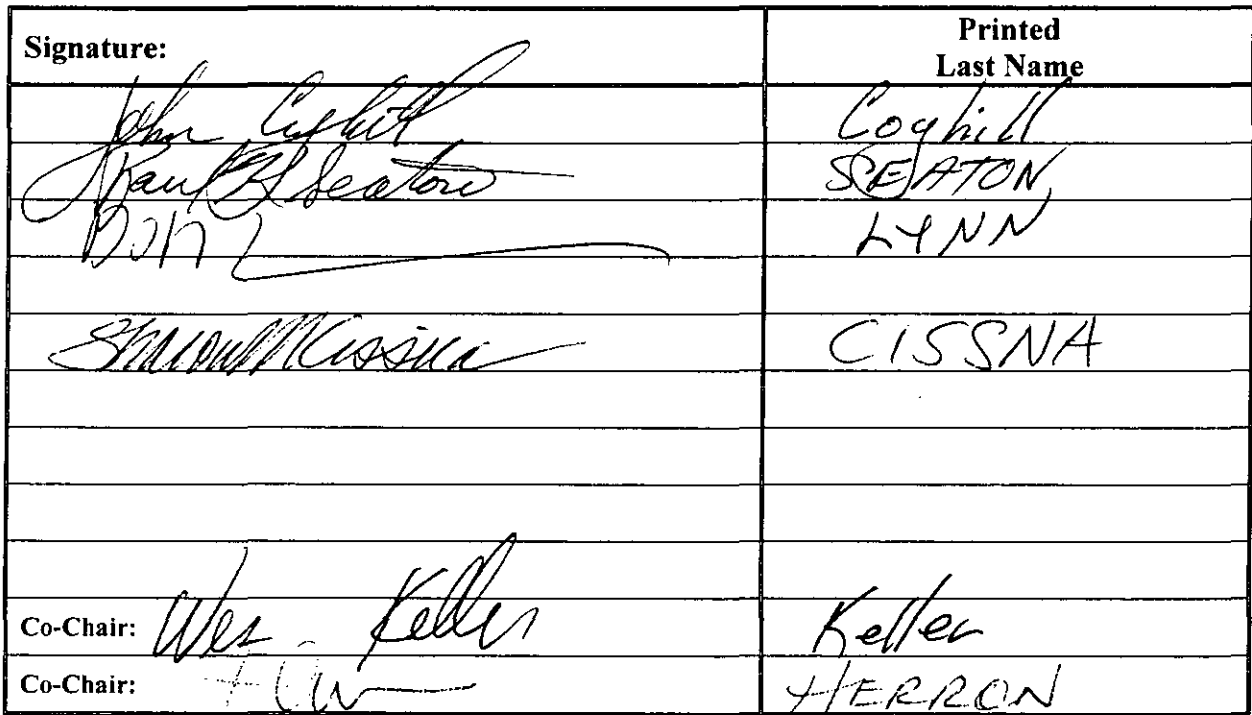 Signature: Printed
Last Name
John Coghill Coghill
Paul Seaton SEATON
Don LYNN
Sharon M Cissna CISSNA
Co-Chair: Wes Keller Keller
Co-Chair: HERRON